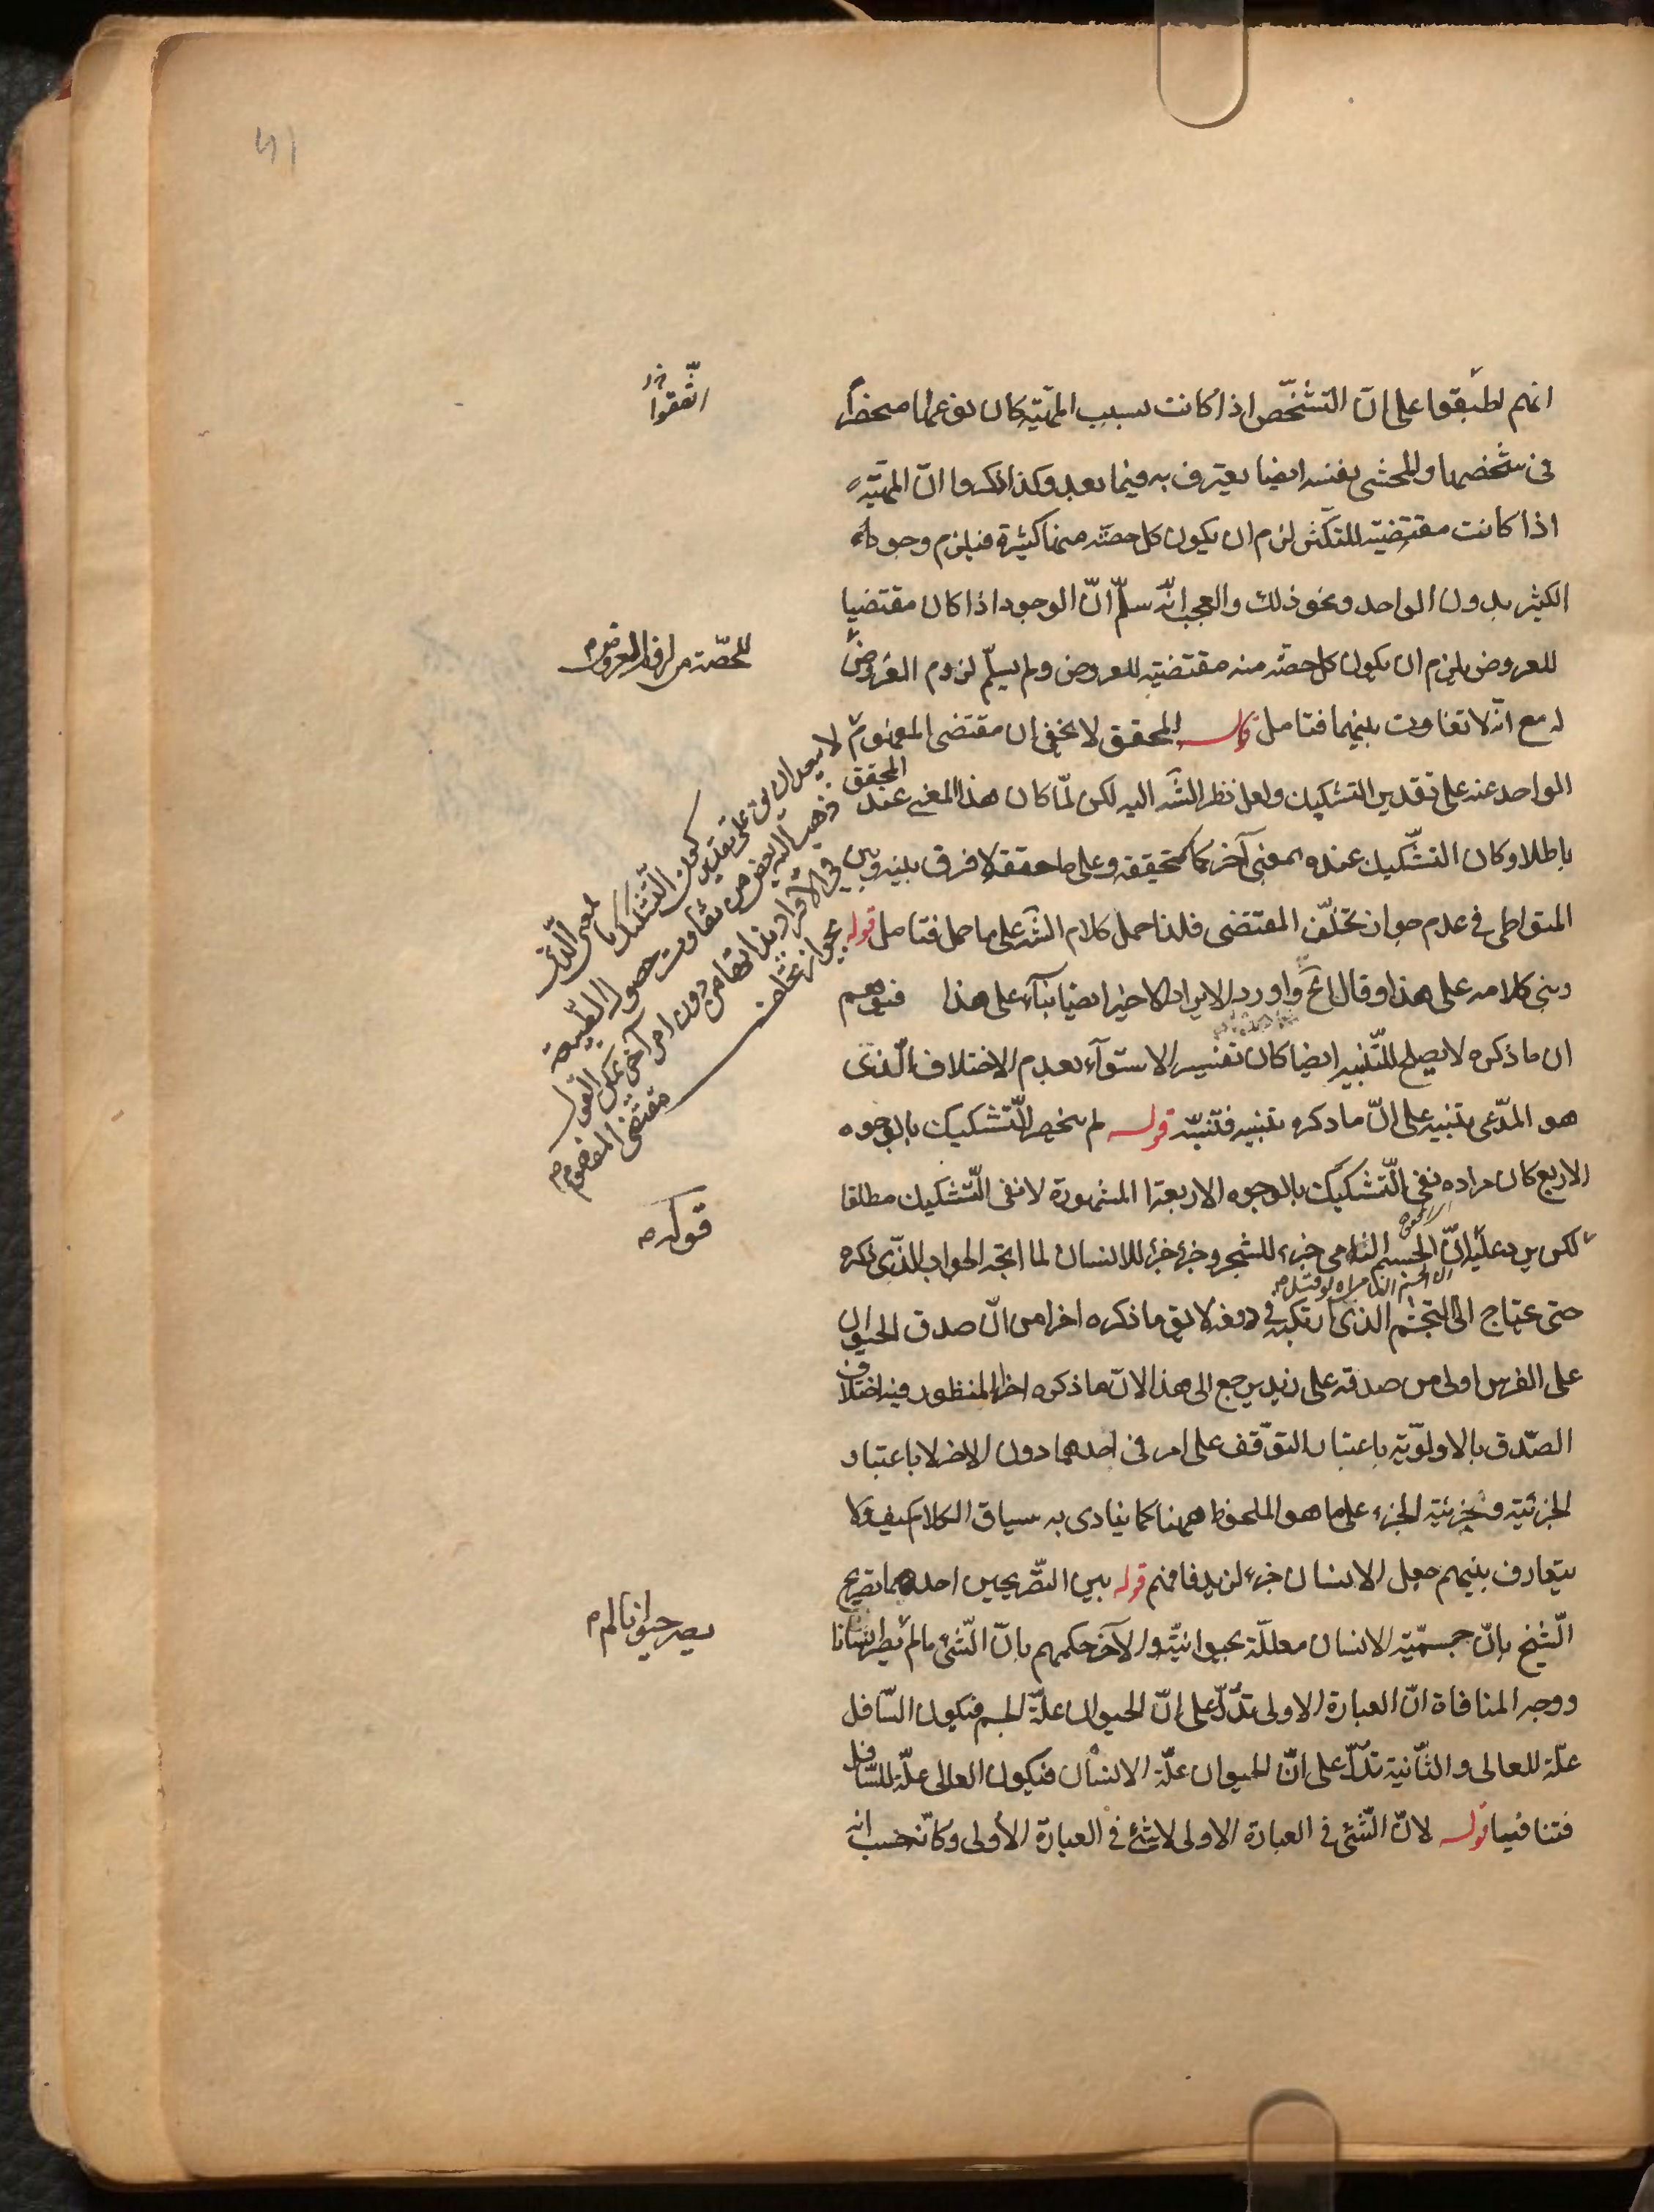 انهم اطبقوا على انّ التشخّص اذا كانت بسبب المهيّة كان نوعها منحصراً
فى شخصها والمحشى نفسه ايضا يعترف به فيما بعد وكذا ذكروا انّ المهيّة
اذا كانت مقتضية للتكثّر لزم ان يكون كل حصّة منها كثيرة فيلزم وجود
الكثير بدون الواحد ونحو ذلك والعجب انّه سلّم انّ الوجود اذا كان مقتضيا
للعروض يلزم ان يكون كل حصّة منه مقتضية للعروض ولم يسلّم لزوم العروض
له مع انّه لا تفاوت بينهما فتامل قال المحقق لا يخفى ان مقتضى المفهوم
الواحد عنه على تقدير التشكيك ولعل نظر الشّه اليه لكن لمّا كان هذا المعنى عند المحقق
باطلا وكان التشّكيك عنده بمعنى آخر كما حققه وعلى ما حققه لا فرق بينه وبين
المتواطى فى عدم جواز تخلّف المقتضى فلذا حمل كلام الشّه على ما حمل فتامل قوله
وبنى كلامه على هذا وقال الخَ واورد الايراد الاخير ايضا بنآء على هذا فتوهم
ان ما ذكره لا يصلح للتّنبيه ايضا كان تفسير الاستوآء بعدم الاختلاف الّذى
هو المدّعى بتنبيه على انّ ما ذكره تنبيه فتنبّه قوله لم ينحصر التّشكيك بالوجوه
الاربع كان مراده نفى التّشكيك بالوجوه الاربعة المشهورة لا نفى التّشكيك مطلقا
لكن يرد عليه انّ الجسم النامى جزء للشجر وجزء جزء للانسان لما اتجه الجواب الذّى ذكره
حتى يحتاج الى التجشّم الذى ارتكبه فى دفعه لا يق ما ذكره اخرا من انّ صدق الحيوان
على الفرس اولى من صدقه على زيد يرجع الى هذا لانّ ما ذكره اخرا المنظور فيه اختلاف
الصّدق بالاولويّة باعتبار التوّقف على امر فى احدهما دون الاخر لا باعتبار
الجزئية وجزئية الجزء على ما هو الملحوظ ههنا كما ينادى به سياق الكلام كيف ولا
يتعارف بينهم جعل الانسان جزء لزيد فافهم قوله بين التصّريحين احدهما تصريح
الّشيخ بانّ جسميّة الانسان معلّلة بحيوانيّته والآخر حكمهم بانّ الشّئ ما لم يصر انسانا
ووجه المنافاة انّ العبارة الاولى تدّل على انّ الحيوان علّة الجسم فيكون السّافل
علّة للعالى والثّانية تدّل على انّ الحيوان علّة الانسان فيكون العالى علّة للسّافل
فتنافيا قوله لانّ الشّئ فى العبارة الاولى لا شئ فى العبارة الأولى وكانّه حسب انه
اتّفقوا
للحصّة من افراد المعروض
لا يبعد ان يق على تقدير
كون التّشكيك بالمعنى الّذى
ذهب اليه البعض من تفاوت حصول الطّبيعة
فى الافراد بذاتها من دون امر آخر يمكن القول
بجواز تخلف مقتضى المفهوم
قوله
يصر حيوانا لم